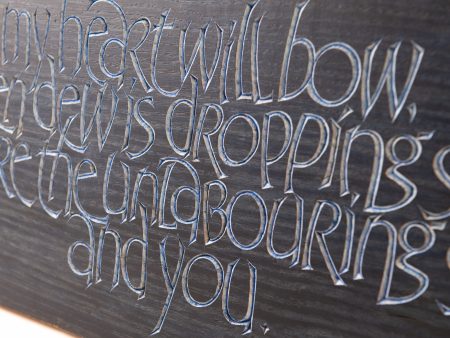 my heart will bow,
dew is dropping
the unlabouring
and you.